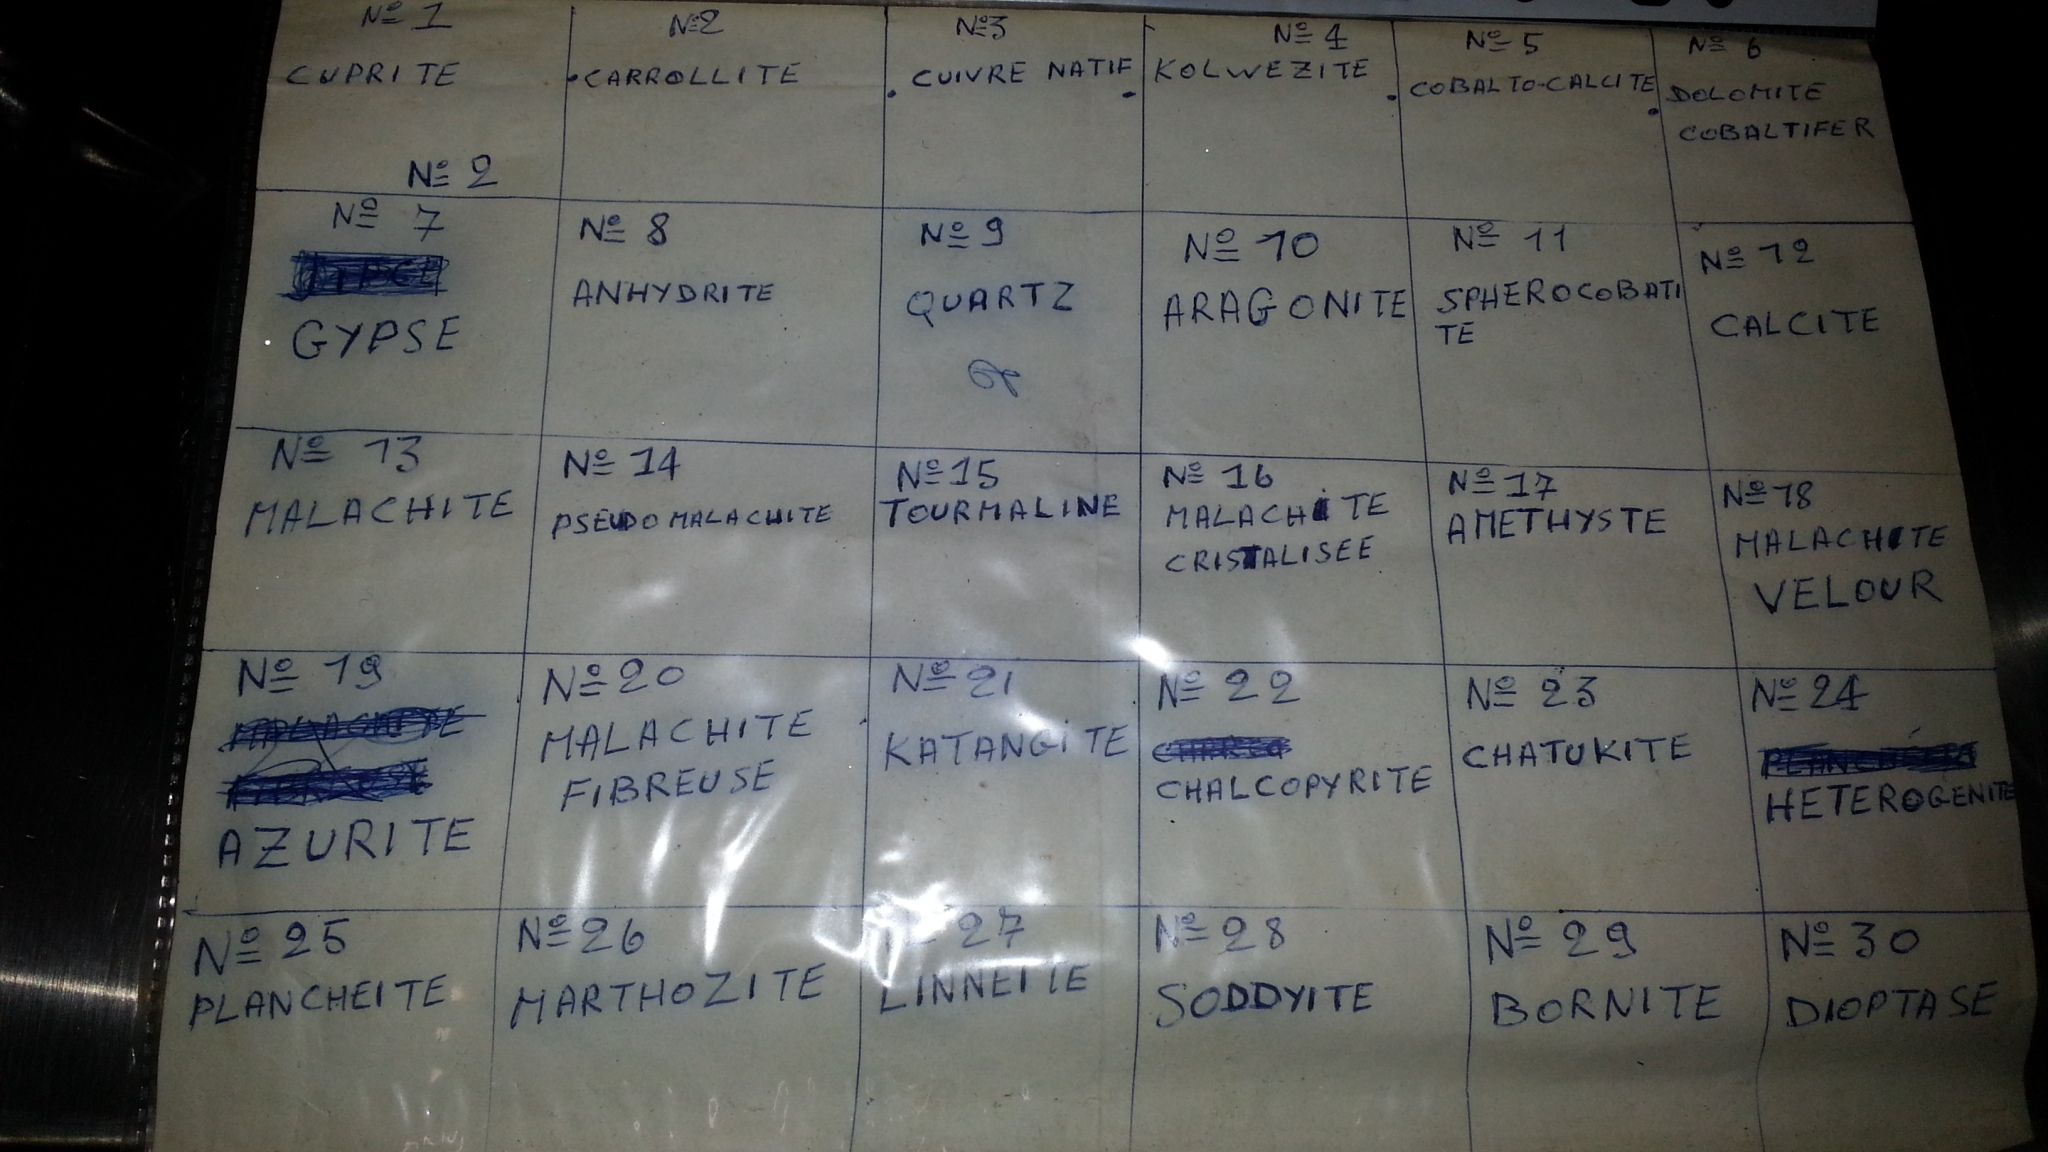 Nº 1
CUPRITE
Nº 2
Nº 2
CARROLLITE
Nº 3
CUIVRE NATIF
Nº 4
KOLWEZITE
Nº 5
COBALTO-CALCITE
Nº 6
DOLOMITE
COBALTIFER
Nº 7
GYPSE
Nº 8
ANHYDRITE
Nº 9
QUARTZ
Nº 10
ARAGONITE
Nº 11
SPHEROCOBATI
TE
Nº 12
CALCITE
Nº 13
MALACHITE
Nº 14
PSEUDOMALACHITE
Nº 15
TOURMALINE
Nº 16
MALACHITE
CRISTALISEE
Nº 17
AMETHYSTE
Nº 18
MALACHITE
VELOUR
Nº 19
AZURITE
Nº 20
MALACHITE
FIBREUSE
Nº 21
KATANGITE
Nº 22
CHALCOPYRITE
Nº 23
CHATUKITE
Nº 24
HETEROGENITE
Nº 25
PLANCHEITE
Nº 26
MARTHOZITE
27
LINNEITE
Nº 28
SODDYITE
Nº 29
BORNITE
Nº 30
DIOPTASE